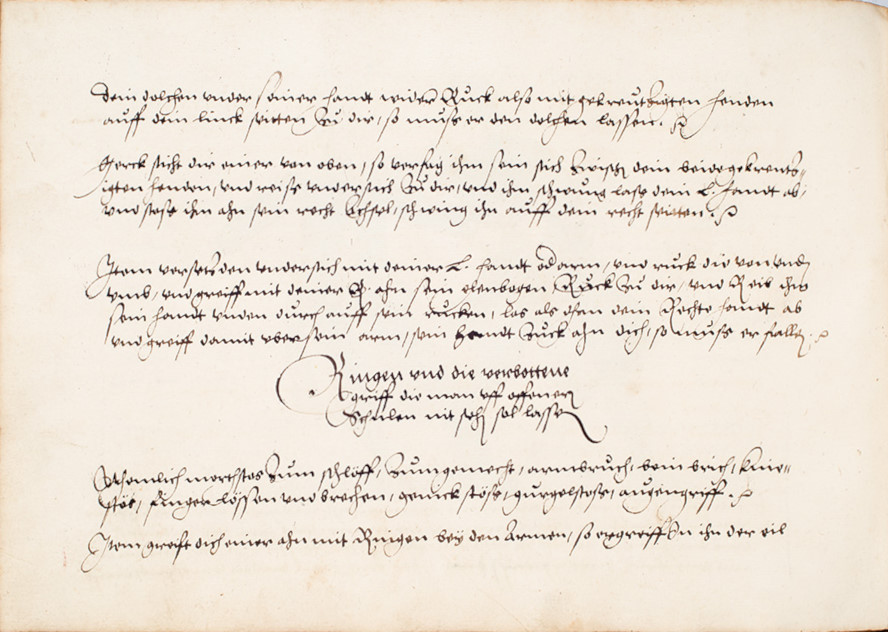 dein dolchen vnder seiner handt wider Ruck also mit gekreutzigten henden
auff dein linck seitten Zu dir, so muss er den dolchen lassen.
Merck sticht dir einer von oben, so verfag ihm sein stich Zwischen dein beide gekreutz-
igten henden, vnd reiss vndersich Zu dir, vnd ihm schwung lass dein L. handt ab,
vnd stoss ihm ahn sein recht Achsel, schwing ihn auff dein recht seitten.
Item versetz den vndersich mit deiner L. handt od arm, vnd ruck die von vnden
vmb, vnd greiff mit deiner R. ahn sein elenbogen, Ruck Zu dir, vnd Reib ihm
sein handt vnden durch auff sein rucken, las als dann dein Rechte handt ab
vnd greiff damit vber sein arm, sein handt Zuck ahn dich, so muss er fallen.
Ringen vnd die verbottene
griff die man vff offenen
Schulen nit sehen sol lassen
Nemlich mordstos Zum schloff, Zum gemecht, armbruch, bein brich, knie-
stos, finger lössen vnd brechen, genick stöss, gurgelstoss, augengriff.
Item greift dich einer ahn mit Ringen bey den Armen, so ergreiff du ihn der eil